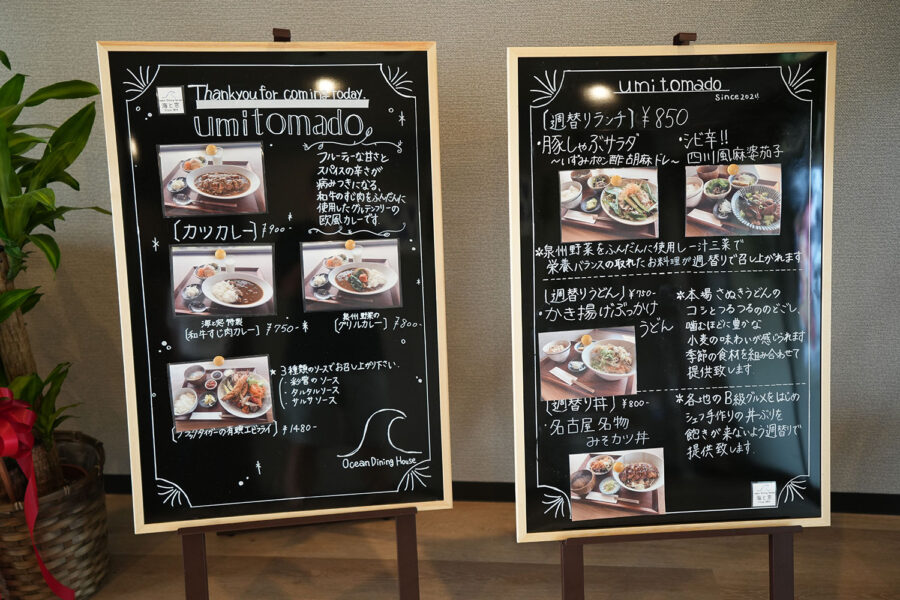 Thankyou for coming today.
umitomado
フルーティーな甘さと
スパイスの辛さが
病みつきになる、
和牛のすじ肉をふんだんに
使用したグルテンフリーの
欧風カレーです
[カツカレー] ¥900-
海と窓 特製
[和牛すじ肉カレー] ¥750-
泉州野菜の
[グリルカレー] ¥800-
*3種類のソースでお召し上がり下さい.
タルタルソース
サルサソース
[ブラックタイガーの有頭エビフライ] ¥1480-
Ocean Dining House
海と窓
umitomado
since2021
[週替りランチ] ¥850
・豚しゃぶサラダ
〜いずみポン酢胡麻ドレ〜
・シビ辛!!
四川風麻婆茄子
*泉州野菜をふんだんに使用し一汁三菜で
栄養バランスの取れたお料理が週替りで召し上がれます
[週替りうどん] ¥750-
・かき揚げぶっかけ
うどん
*本場さぬきうどんの
コシとつるつるののどごし、
噛むほどに豊かな
小麦の味わいが感じられます
季節の食材を組み合わせて
提供致します
[週替り丼] ¥800-
・名古屋名物
みそカツ丼
*各地のB級グルメをはじめ
シェフ手作りの丼ぶりを
飽きが来ないよう週替りで
提供致します.
海と窓